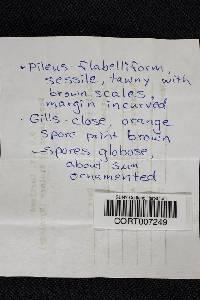 • Pileus flabelliform,
sessile, tawny with
brown scales,
margin incurved
• Gills - close, orange
spore print brown
- spores globose,
about 5um
ornamented
CORT007249